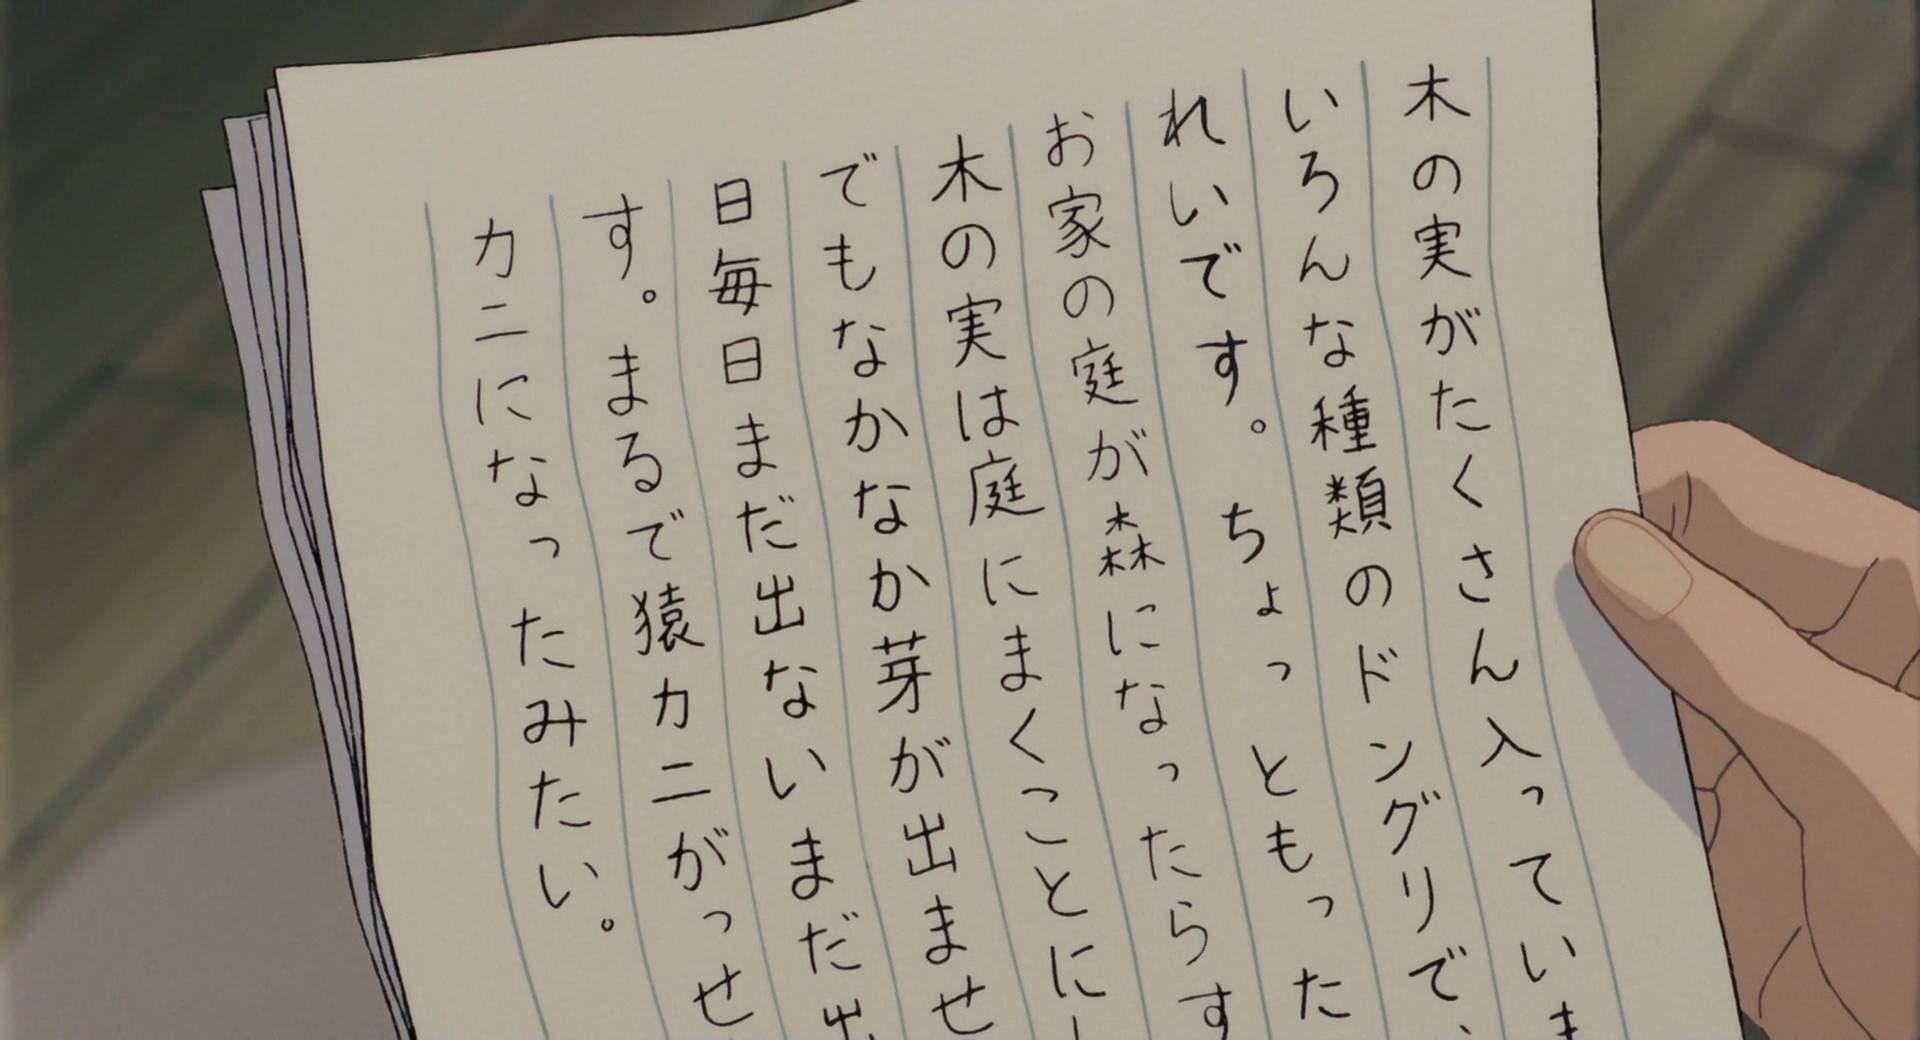 木の実がたくさん入っていま
いろんな種類のドングリで、
れいです。ちょっともった
お家の庭が森になったらす
木の実は庭にまくことにし
でもなかなか芽が出ませ
日毎日まだ出ないまだ出
す。まるで猿カニがっせ
カニになったみたい。